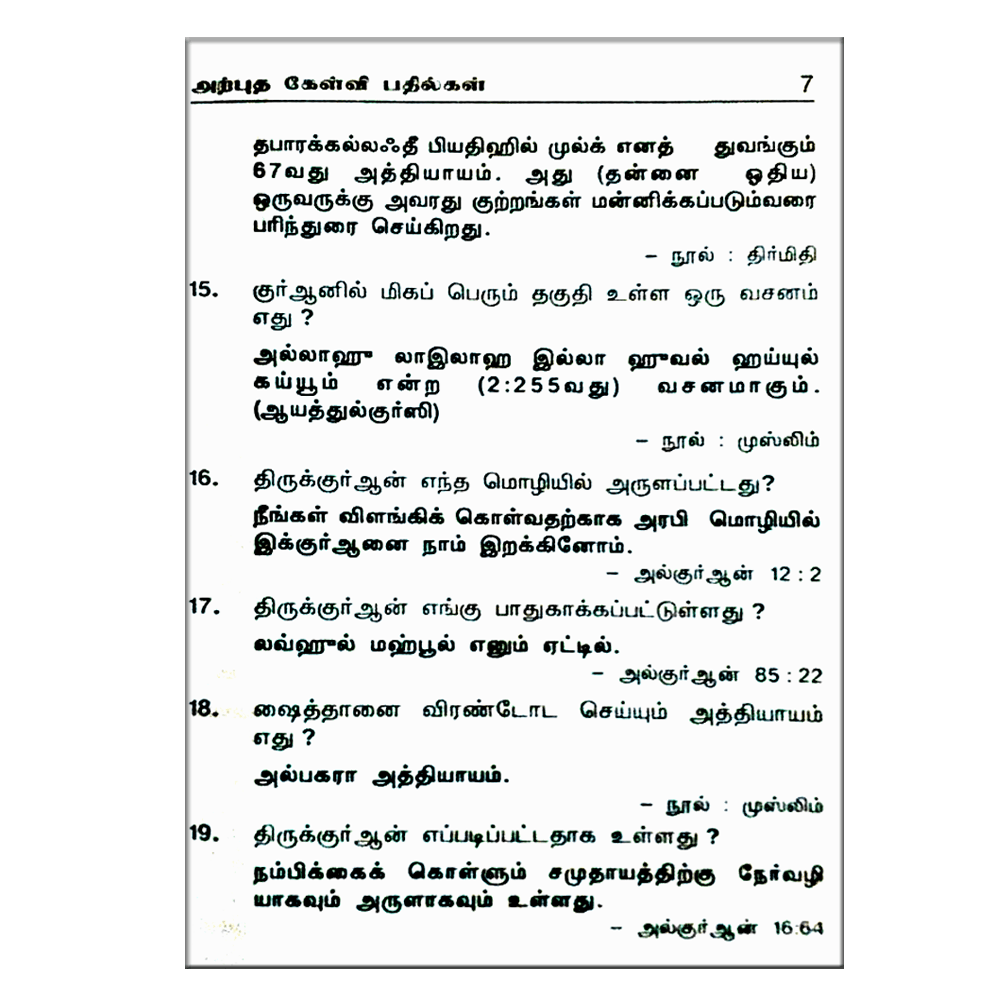 அற்புத கேள்வி பதில்கள் 7
தபாரக்கல்லஃதீ பியதிஹில் முல்க் எனத் துவங்கும்
67வது அத்தியாயம். அது (தன்னை ஓதிய)
ஒருவருக்கு அவரது குற்றங்கள் மன்னிக்கப்படும்வரை
பரிந்துரை செய்கிறது.
– நூல் : திர்மிதி
15. குர்ஆனில் மிகப் பெரும் தகுதி உள்ள ஒரு வசனம்
எது ?
அல்லாஹு லாஇலாஹ இல்லா ஹுவல் ஹய்யுல்
கய்யூம் என்ற (2:255வது) வசனமாகும்.
(ஆயத்துல்குர்ஸி)
– நூல் : முஸ்லிம்
16. திருக்குர்ஆன் எந்த மொழியில் அருளப்பட்டது?
நீங்கள் விளங்கிக் கொள்வதற்காக அரபி மொழியில்
இக்குர்ஆனை நாம் இறக்கினோம்.
– அல்குர்ஆன் 12 : 2
17. திருக்குர்ஆன் எங்கு பாதுகாக்கப்பட்டுள்ளது ?
லவ்ஹுல் மஹ்பூல் எனும் ஏட்டில்.
– அல்குர்ஆன் 85 : 22
18. ஷைத்தானை விரண்டோட செய்யும் அத்தியாயம்
எது ?
அல்பகரா அத்தியாயம்.
– நூல் : முஸ்லிம்
19. திருக்குர்ஆன் எப்படிப்பட்டதாக உள்ளது ?
நம்பிக்கைக் கொள்ளும் சமுதாயத்திற்கு நேர்வழி
யாகவும் அருளாகவும் உள்ளது.
– அல்குர்ஆன் 16:64